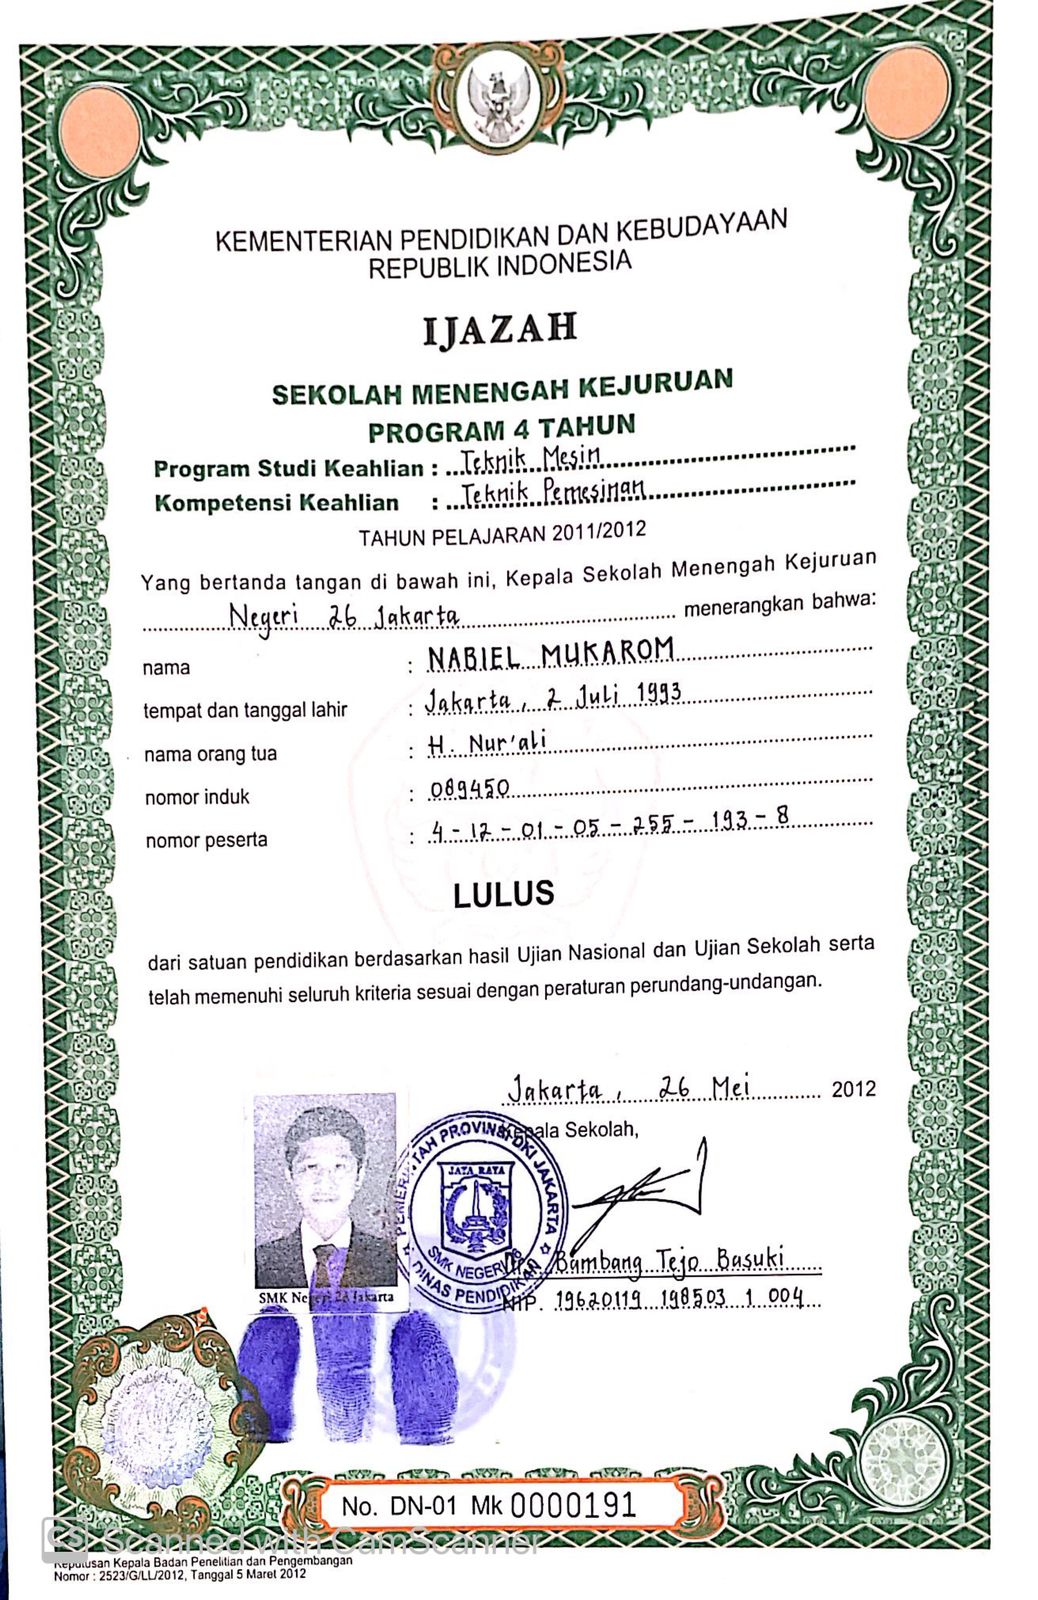 KEMENTERIAN PENDIDIKAN DAN KEBUDAYAAN
REPUBLIK INDONESIA
IJAZAH
SEKOLAH MENENGAH KEJURUAN
PROGRAM 4 TAHUN
Program Studi Keahlian : Teknik Mesin
Kompetensi Keahlian : Teknik Pemesinan
TAHUN PELAJARAN 2011/2012
Yang bertanda tangan di bawah ini, Kepala Sekolah Menengah Kejuruan
Negeri 26 Jakarta menerangkan bahwa:
nama : NABIEL MUKAROM
tempat dan tanggal lahir : Jakarta, 2 Juli 1993
nama orang tua : H. Nur'ali
nomor induk : 089450
nomor peserta : 4 - 12 - 01 - 05 - 255 - 193 - 8
LULUS
dari satuan pendidikan berdasarkan hasil Ujian Nasional dan Ujian Sekolah serta
telah memenuhi seluruh kriteria sesuai dengan peraturan perundang-undangan.
Jakarta, 26 Mei 2012
Kepala Sekolah,
PEMERINTAH PROVINSI DKI JAKARTA
JAYA RAYA
SMK NEGERI 26
DINAS PENDIDIKAN
Bambang Tejo Basuki
NIP. 19620119 198503 1 004
SMK Negeri 26 Jakarta
No. DN-01 Mk 0000191
Scanned with CamScanner
Keputusan Kepala Badan Penelitian dan Pengembangan
Nomor : 2523/G/LL/2012, Tanggal 5 Maret 2012